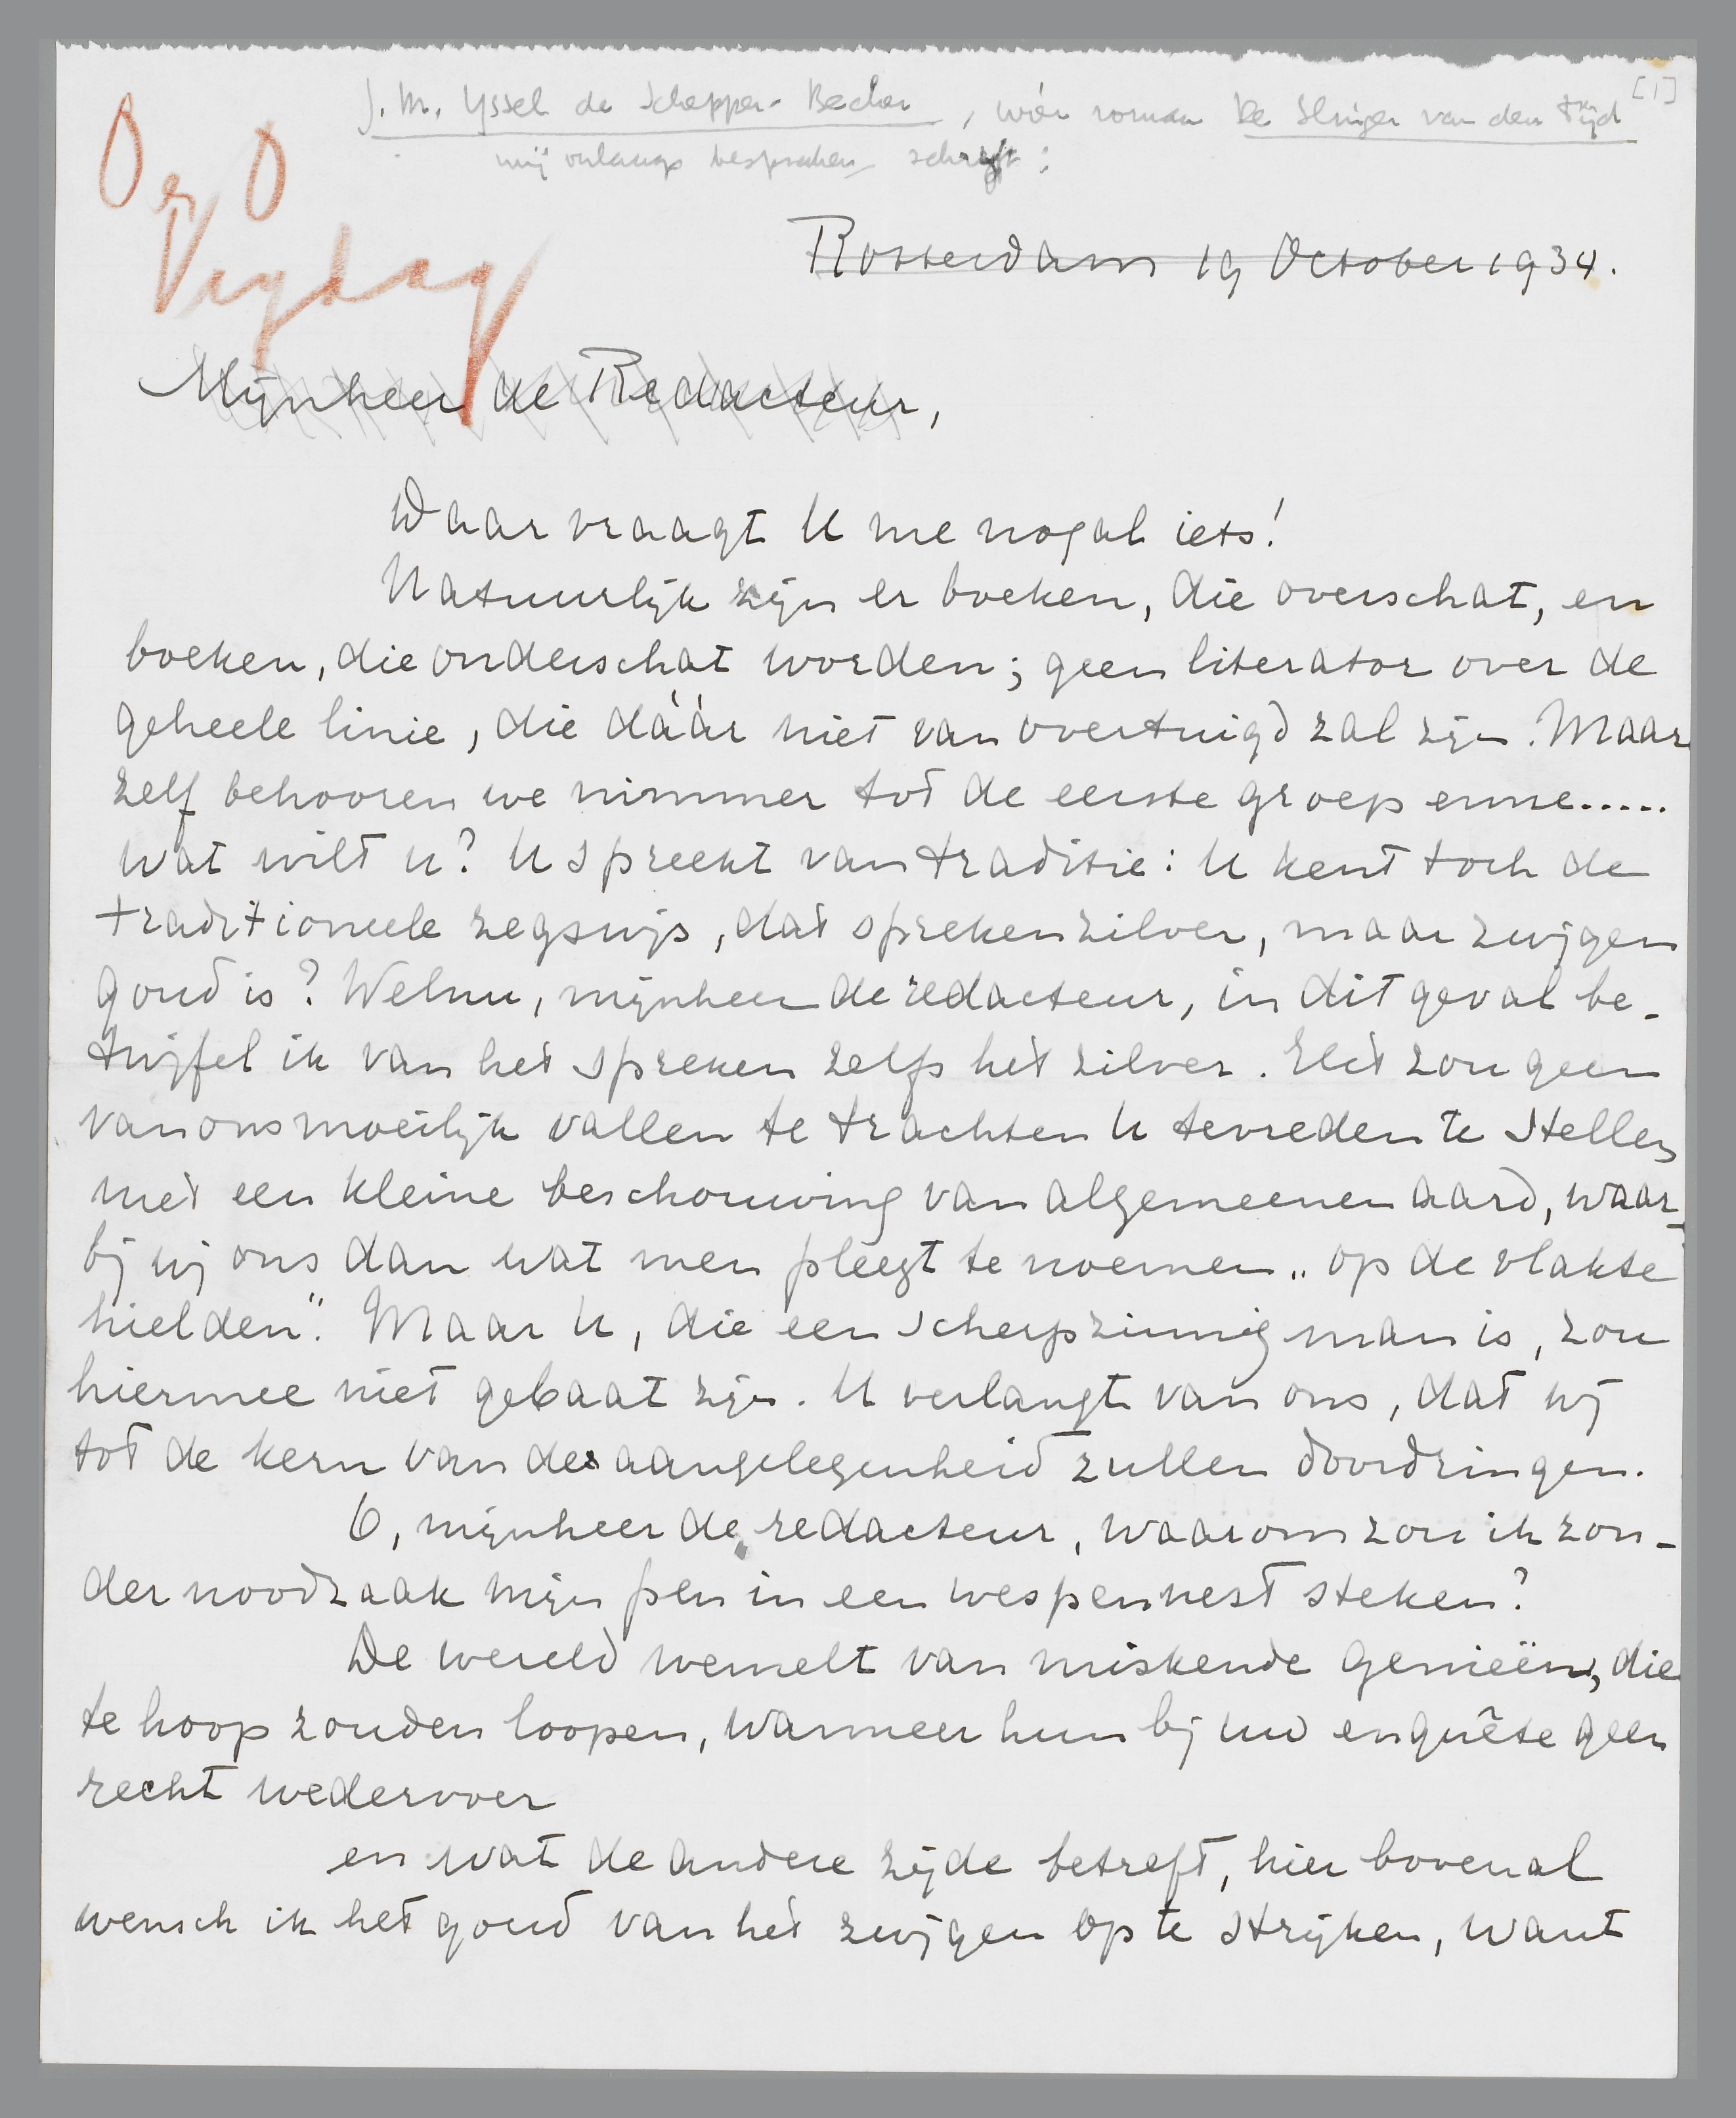 [1]
J. M. Yssel de Schepper-Becker, wier roman De Slinger van den Tijd
wij onlangs bespraken schrijft:
O en O
Vrijdag
Rotterdam 19 October 1934.
Mijnheer de Redacteur,
Daar vraagt U me nogal iets!
Natuurlijk zijn er boeken, die overschat, en
boeken, die onderschat worden; geen literator over de
geheele linie, die dáár niet van overtuigd zal zijn. Maar
zelf behooren we nimmer tot de eerste groep enne.....
wat wilt u? U spreekt van traditie: U kent toch de
traditioneele zegswijs, dat spreken zilver, maar zwijgen
goud is? Welnu, mijnheer de redacteur, in dit geval be-
twijfel ik van het spreken zelfs het zilver. Het zou geen
van ons moeilijk vallen te trachten U tevreden te stellen
met een kleine beschouwing van algemeenen aard, waar-
bij wij ons dan wat men pleegt te noemen „op de vlakte
hielden". Maar U, die een scherpzinnig man is, zou
hiermee niet gebaat zijn. U verlangt van ons, dat wij
tot de kern van de aangelegenheid zullen doordringen.
O, mijnheer de redacteur, waarom zou ik zon-
der noodzaak mijn pen in een wespennest steken?
De wereld wemelt van miskende genieën, die
te hoop zouden loopen, wanneer hun bij uw enquête geen
recht wedervoer
en wat de andere zijde betreft, hier bovenal
wensch ik het goud van het zwijgen op te strijken, want